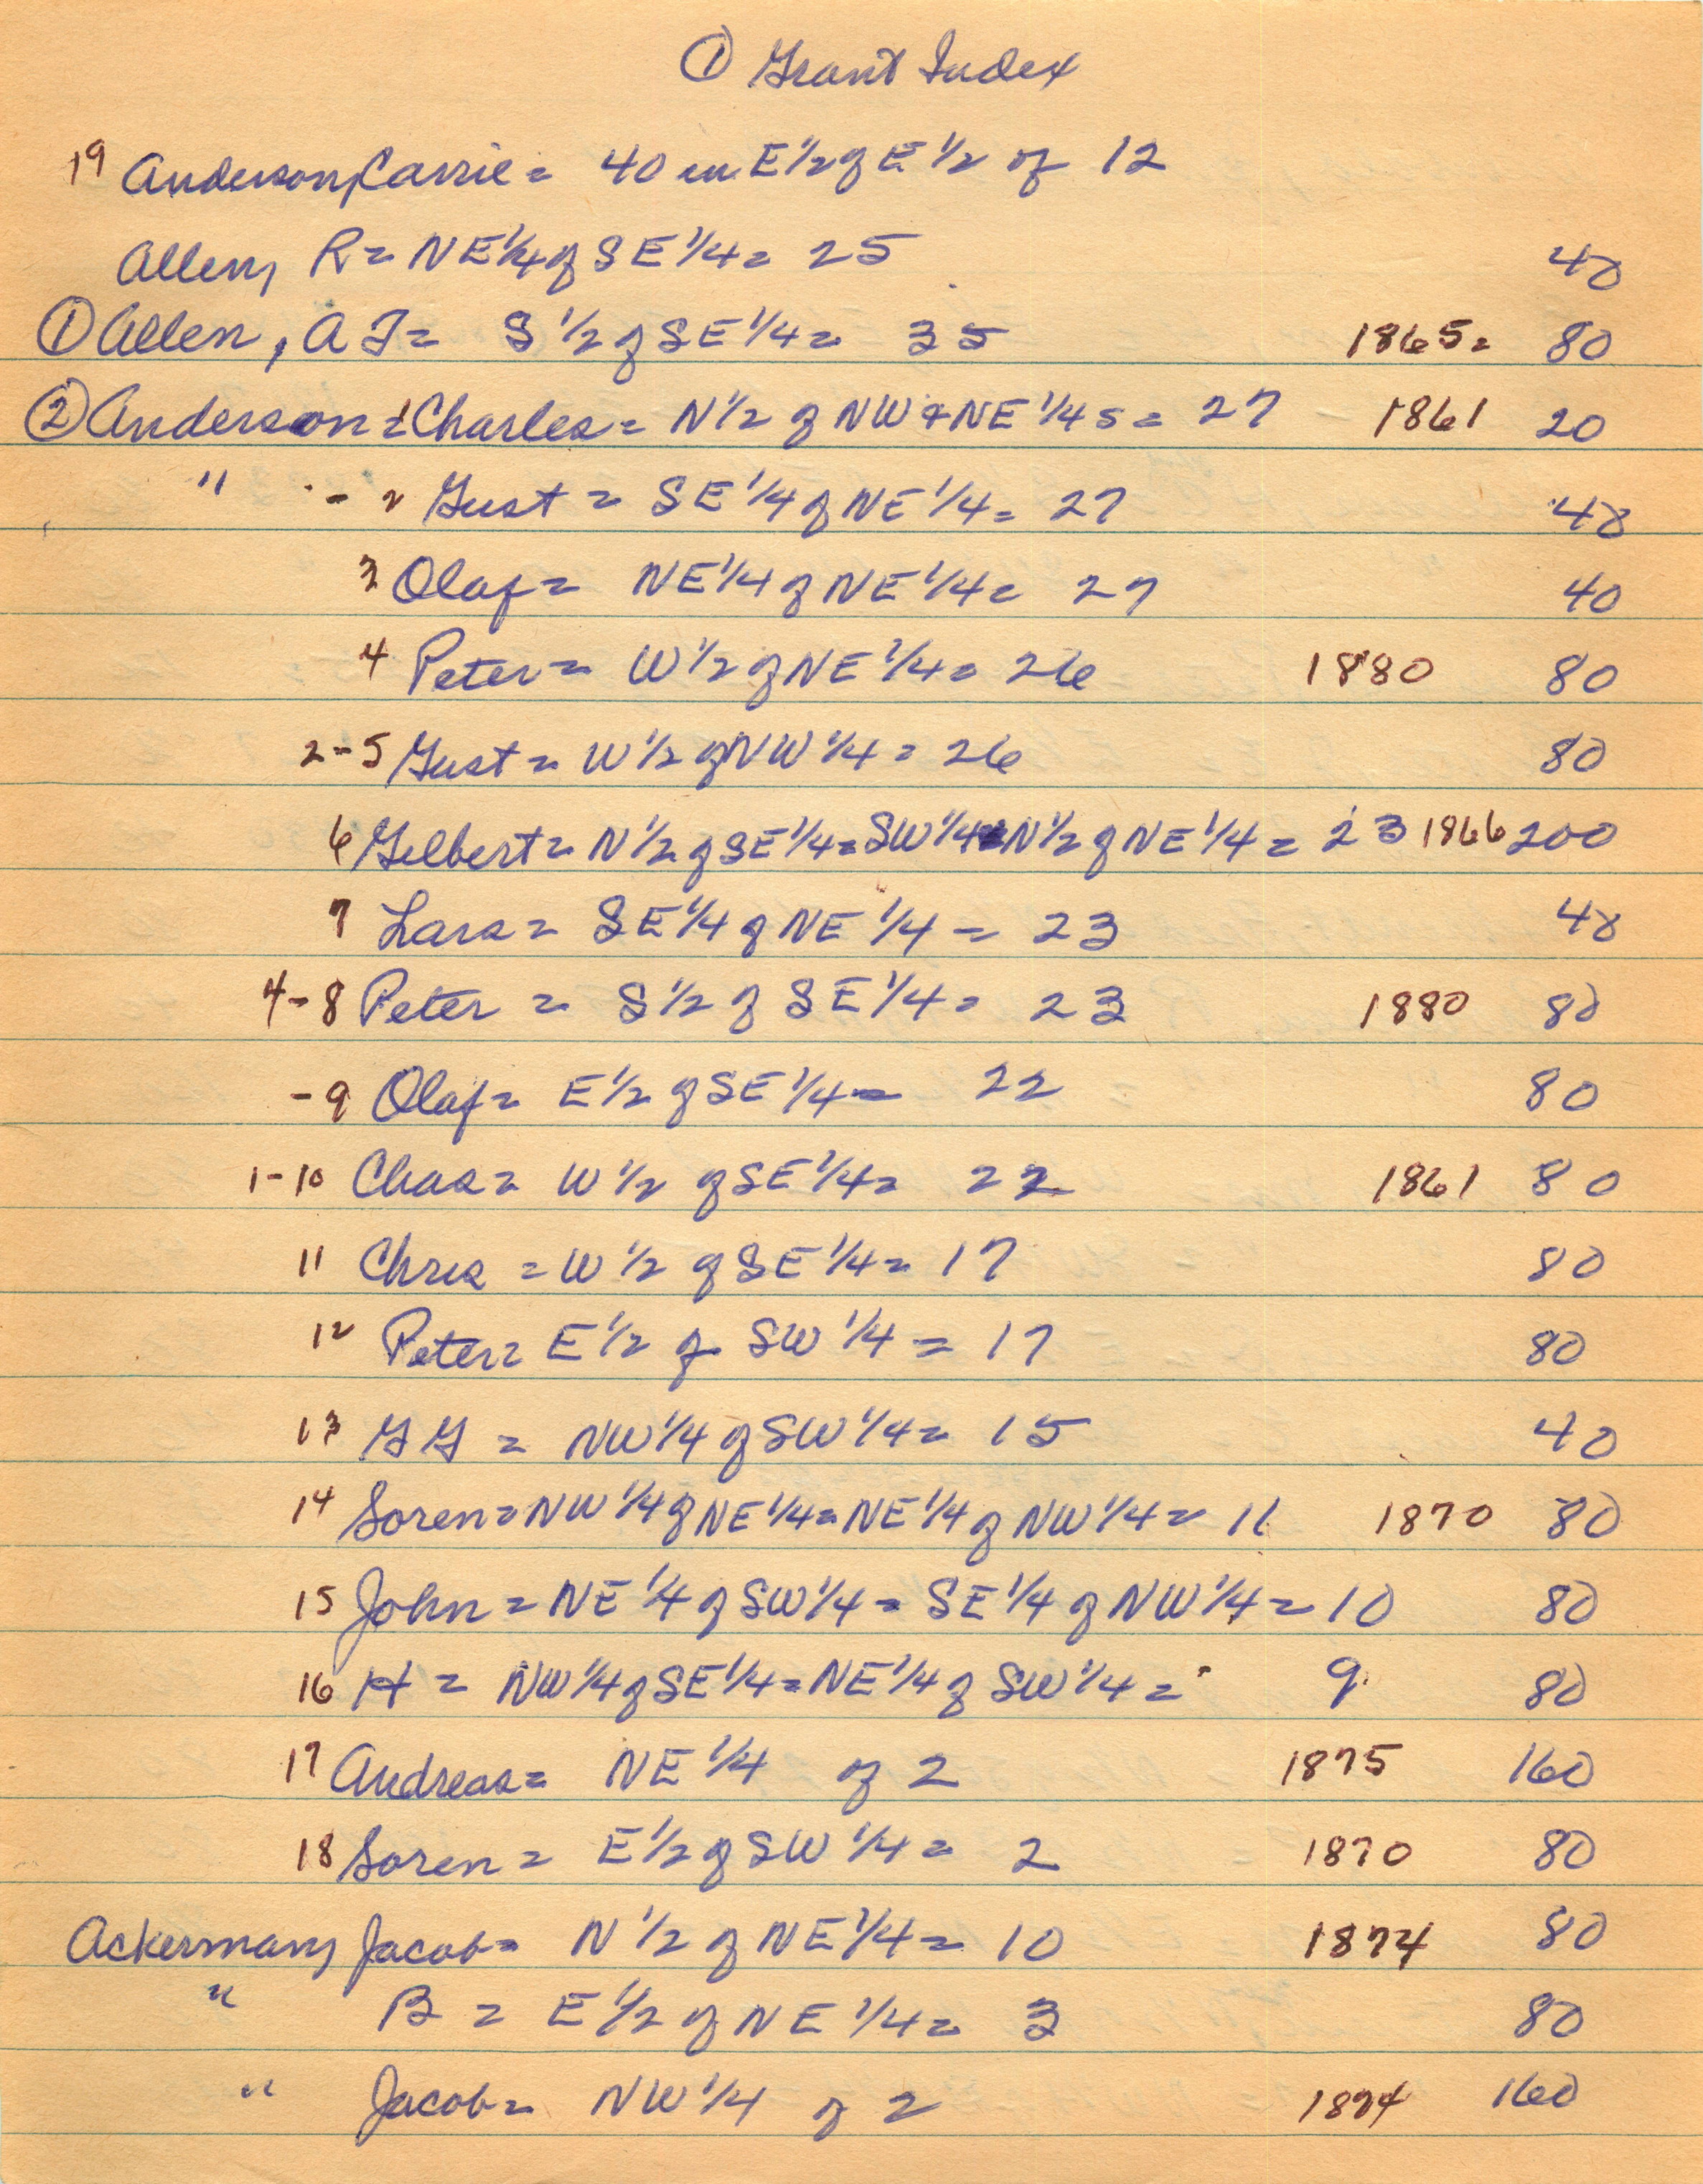 ① Grant Index
19 Anderson, Carrie = 40 in E 1/2 of E 1/2 of 12
Allen, R = NE 1/4 of SE 1/4 = 25 40
① Allen, A J = S 1/2 of SE 1/4 = 35 1865 = 80
② Anderson 1 Charles = N 1/2 of NW & NE 1/4 s = 27 1861 20
" - 2 Gust = SE 1/4 of NE 1/4 = 27 40
3 Olaf = NE 1/4 of NE 1/4 = 27 40
4 Peter = W 1/2 of NE 1/4 = 26 1880 80
2-5 Gust = W 1/2 of NW 1/4 = 26 80
6 Gilbert = N 1/2 of SE 1/4 = SW 1/4 N 1/2 of NE 1/4 = 23 1866 200
7 Lars = SE 1/4 of NE 1/4 = 23 40
4-8 Peter = S 1/2 of SE 1/4 = 23 1880 80
-9 Olaf = E 1/2 of SE 1/4 = 22 80
1-10 Chas = W 1/2 of SE 1/4 = 22 1861 80
11 Chris = W 1/2 of SE 1/4 = 17 80
12 Peter = E 1/2 of SW 1/4 = 17 80
13 G G = NW 1/4 of SW 1/4 = 15 40
14 Soren = NW 1/4 of NE 1/4 = NE 1/4 of NW 1/4 = 11 1870 80
15 John = NE 1/4 of SW 1/4 = SE 1/4 of NW 1/4 = 10 80
16 H = NW 1/4 of SE 1/4 = NE 1/4 of SW 1/4 = 9 80
17 Andreas = NE 1/4 of 2 1875 160
18 Soren = E 1/2 of SW 1/4 = 2 1870 80
Ackerman, Jacob = N 1/2 of NE 1/4 = 10 1874 80
" B = E 1/2 of NE 1/4 = 3 80
" Jacob = NW 1/4 of 2 1874 160